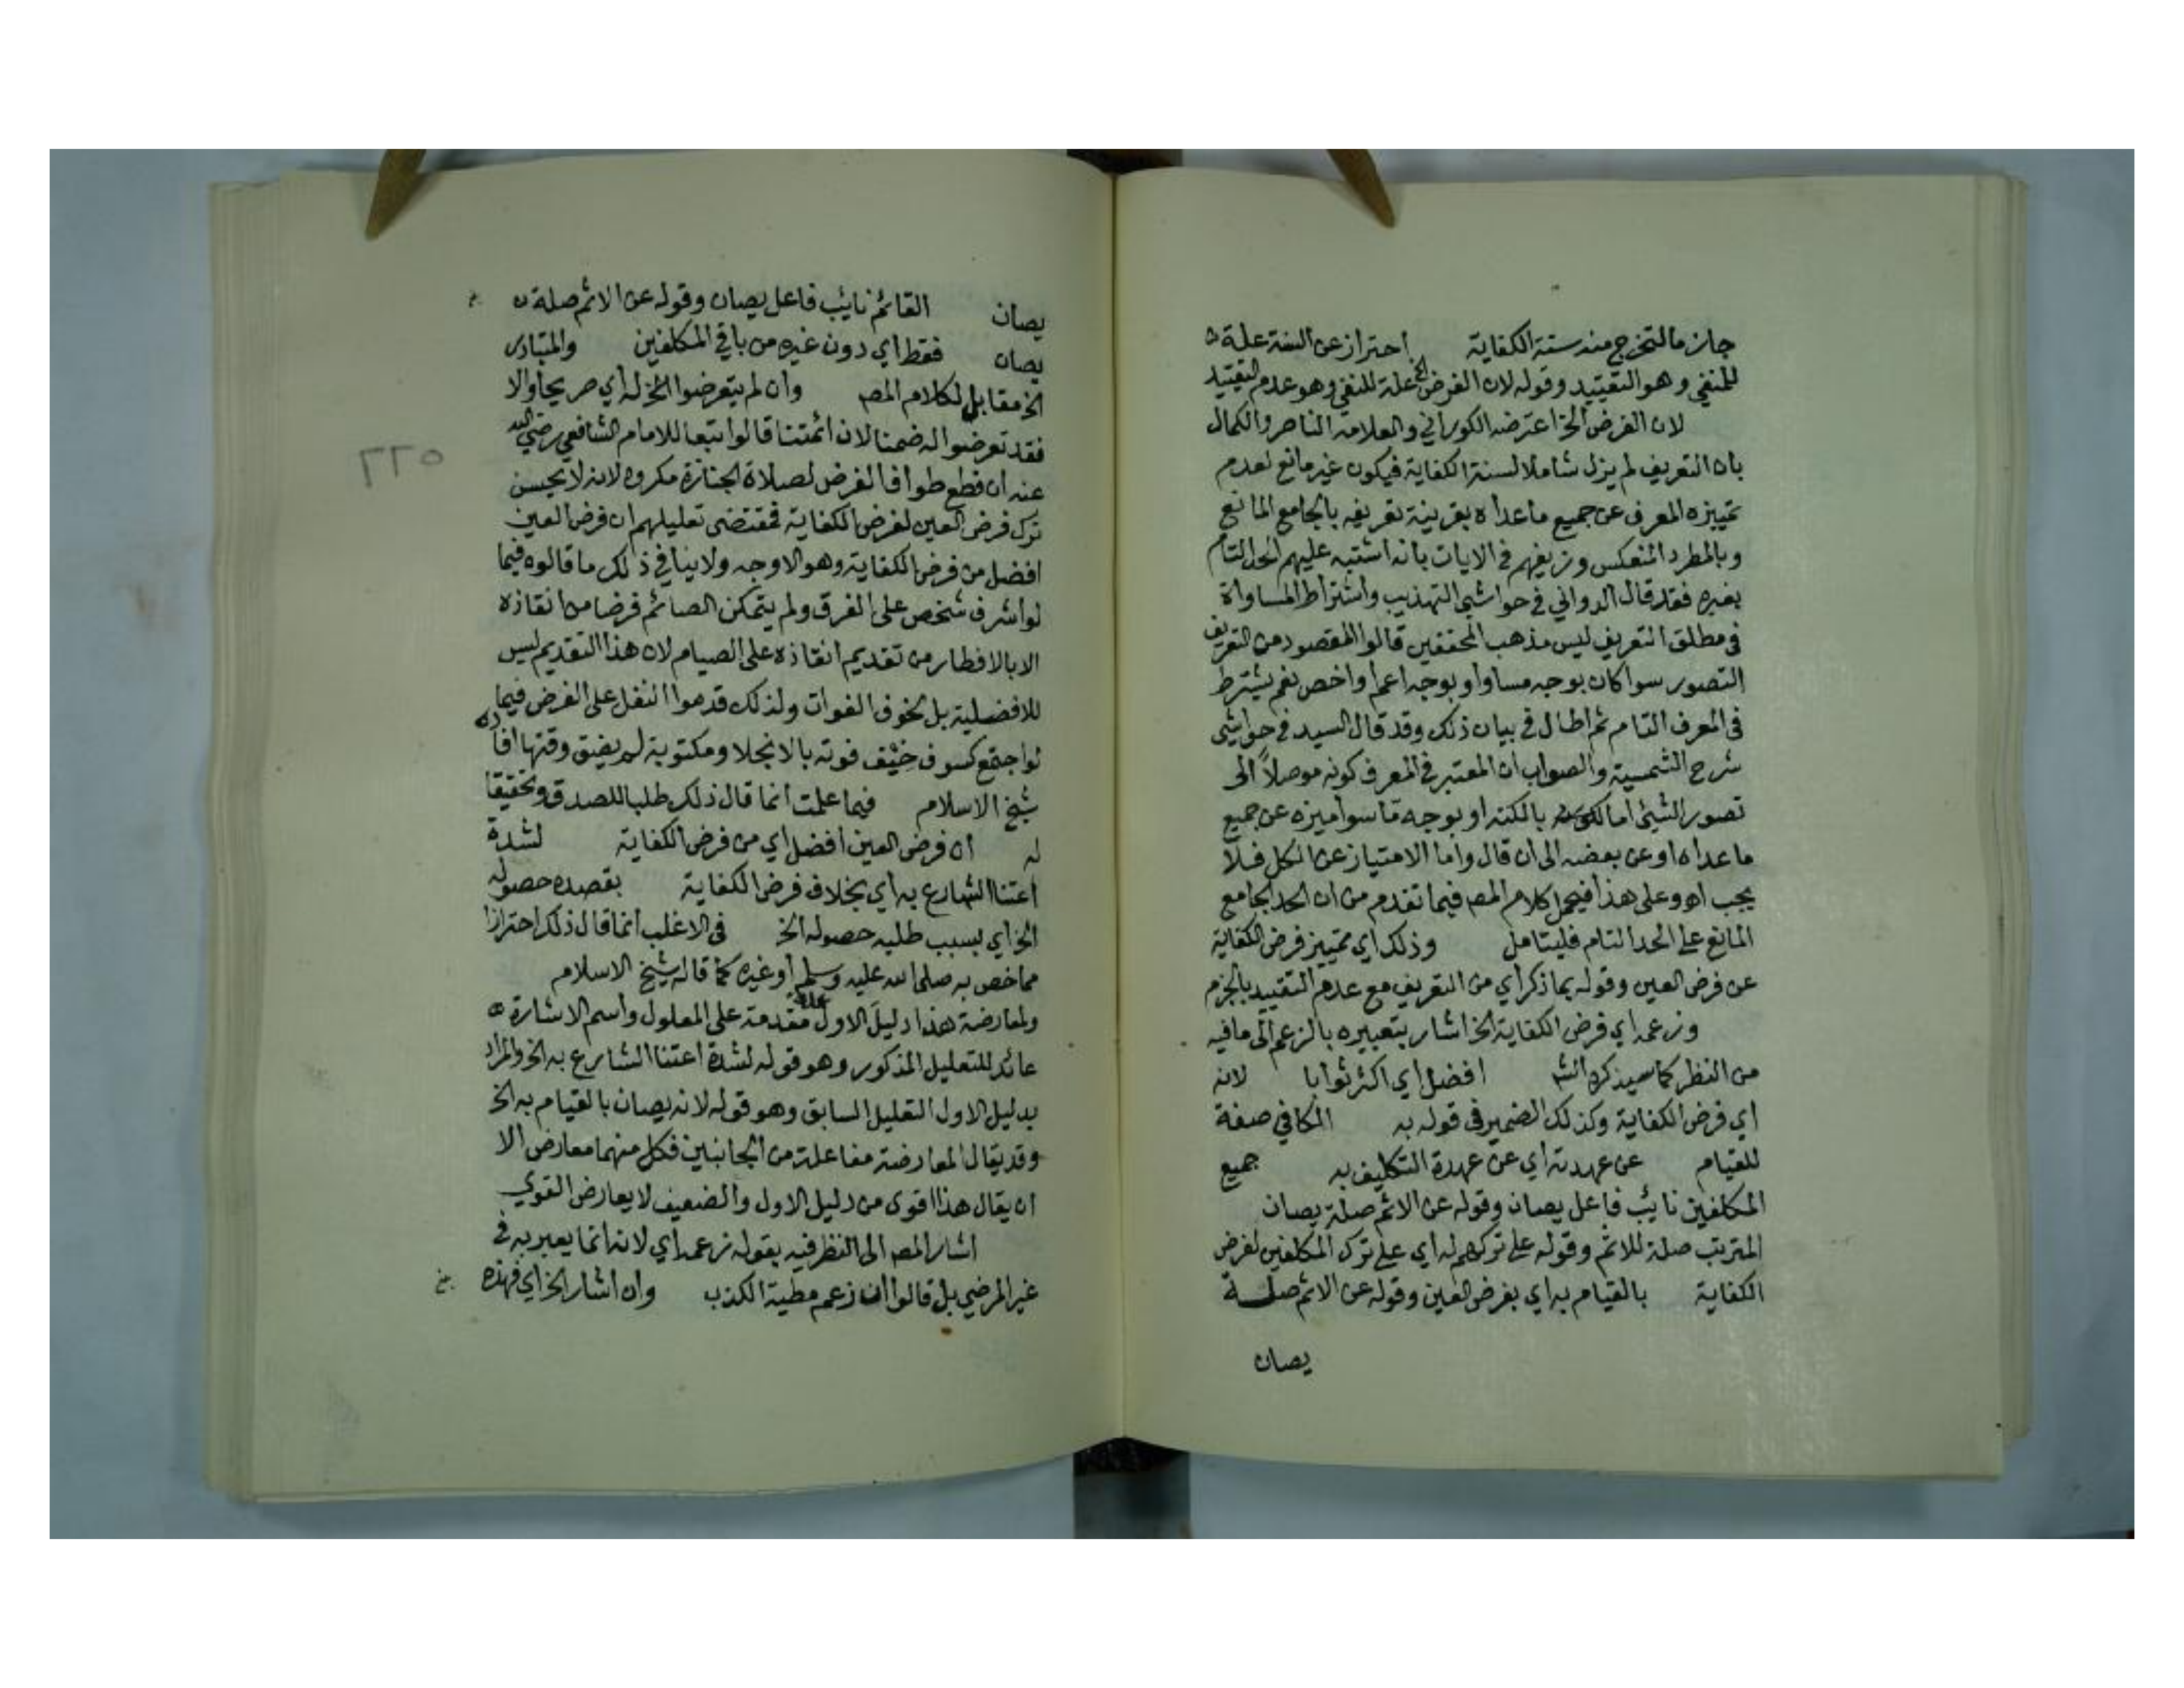 جازما لتخرج منه سنة الكفاية احتراز عن السنة علة
للمنفي وهو التقييد وقوله لان الفرض الخ علة للنفي وهو عدم التقييد
لان الفرض الخ اعترضه الكوراني والعلامة الناصر والكمال
بان التعريف لم يزل شاملا لسنة الكفاية فيكون غير مانع لعدم
تمييزه المعرف عن جميع ما عداه بقرينة تعريفه بالجامع المانع
وبالمطرد المنعكس وزيفهم في الايات بانه اشتبه عليهم الحد التام
بغيره فقد قال الدواني في حواشي التهذيب واشتراط المساواة
في مطلق التعريف ليس مذهب المحققين قالوا المقصود من التعريف
التصور سوا كان بوجه مساو او بوجه اعم او اخص نعم يشترط
في المعرف التام ثم اطال في بيان ذلك وقد قال السيد في حواشي
شرح الشمسية والصواب ان المعتبر في المعرف كونه موصلاً الى
تصور الشيئ اما بالكنه او بوجه ما سوا ميزه عن جميع
ما عداه او عن بعضه الى ان قال واما الامتياز عن الكل فلا
يجب اه وعلى هذا فيحمل كلام المص فيما تقدم من ان الحد الجامع
المانع على الحد التام فليتامل وذلك اي تمييز فرض الكفاية
عن فرض العين وقوله بما ذكر اي من التعريف مع عدم التقييد بالجزم
وزعمه اي فرض الكفاية الخ اشار بتعبيره بالزعم الى ما فيه
من النظر كما سيذكره الش افضل اي اكثر ثوابا لانه
اي فرض الكفاية وكذلك الضمير في قوله به المكافي صفة
للقيام عن عهدته اي عن عهدة التكليف به جميع
المكلفين نايب فاعل يصان وقوله عن الاثم صلة يصان
المترتب صلة للاثم وقوله على تركهم له اي على ترك المكلفين لفرض
الكفاية بالقيام به اي بفرض العين وقوله عن الاثم صلة
يصان
يصان القائم نايب فاعل يصان وقوله عن الاثم صلة
يصان فقط اي دون غيره من باقي المكلفين والمتبادر
الخ مقابل لكلام المص وان لم يتعرضوا الخ له اي صريحا والا
فقد تعرضوا له ضمنا لان ائمتنا قالوا تبعا للامام الشافعي رضي الله
عنه ان قطع طواف الفرض لصلاة الجنازة مكروه لانه لا يحسن
ترك فرض العين لفرض الكفاية فمقتضى تعليلهم ان فرض العين
افضل من فرض الكفاية وهو الاوجه ولا ينافي ذلك ما قالوه فيما
لو اشرف شخص على الغرق ولم يتمكن الصائم فرضا من انقاذه
الا بالافطار من تقديم انقاذه على الصيام لان هذا التقديم ليس
للافضلية بل لخوف الفوات ولذلك قدموا النفل على الفرض فيما
لو اجتمع كسوف خيف فوته بالانجلا ومكتوبة لم يضق وقتها افاده
شيخ الاسلام فيما علمت انما قال ذلك طلبا للصدق وتحقيقا
له ان فرض العين افضل اي من فرض الكفاية لشدة
اعتنا الشارع به اي بخلاف فرض الكفاية بقصده حصوله
الخ اي بسبب طلبه حصوله الخ في الاغلب انما قال ذلك احترازا
مما خص به صلى الله عليه وسلم او غيره كما قاله شيخ الاسلام
ولمعارضة هذا دليلَ الاول علة مقدمة على المعلول واسم الاشارة
عائد للتعليل المذكور وهو قوله لشدة اعتنا الشارع به الخ والمراد
بدليل الاول التعليل السابق وهو قوله لانه يصان بالقيام به الخ
وقد يقال المعارضة مفاعلة من الجانبين فكل منهما معارض الا
ان يقال هذا اقوى من دليل الاول والضعيف لا يعارض القوي
اشار المص الى النظر فيه بقوله زعمه اي لانه انما يعبر به في
غير المرضي بل قالوا ان زعم مطية الكذب وان اشار الخ اي فهذه
٢٢٥